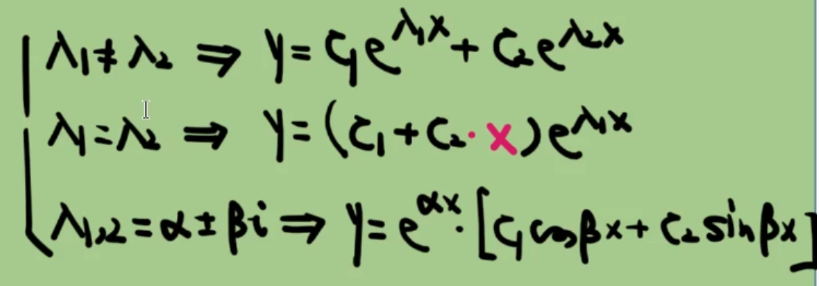 λ₁≠λ₂ ⇒ y=C₁e^{λ₁x}+C₂e^{λ₂x}
λ₁=λ₂ ⇒ y=(C₁+C₂·x)e^{λ₁x}
λ₁,₂=α±βi ⇒ y=e^{αx}·[C₁cosβx+C₂sinβx]